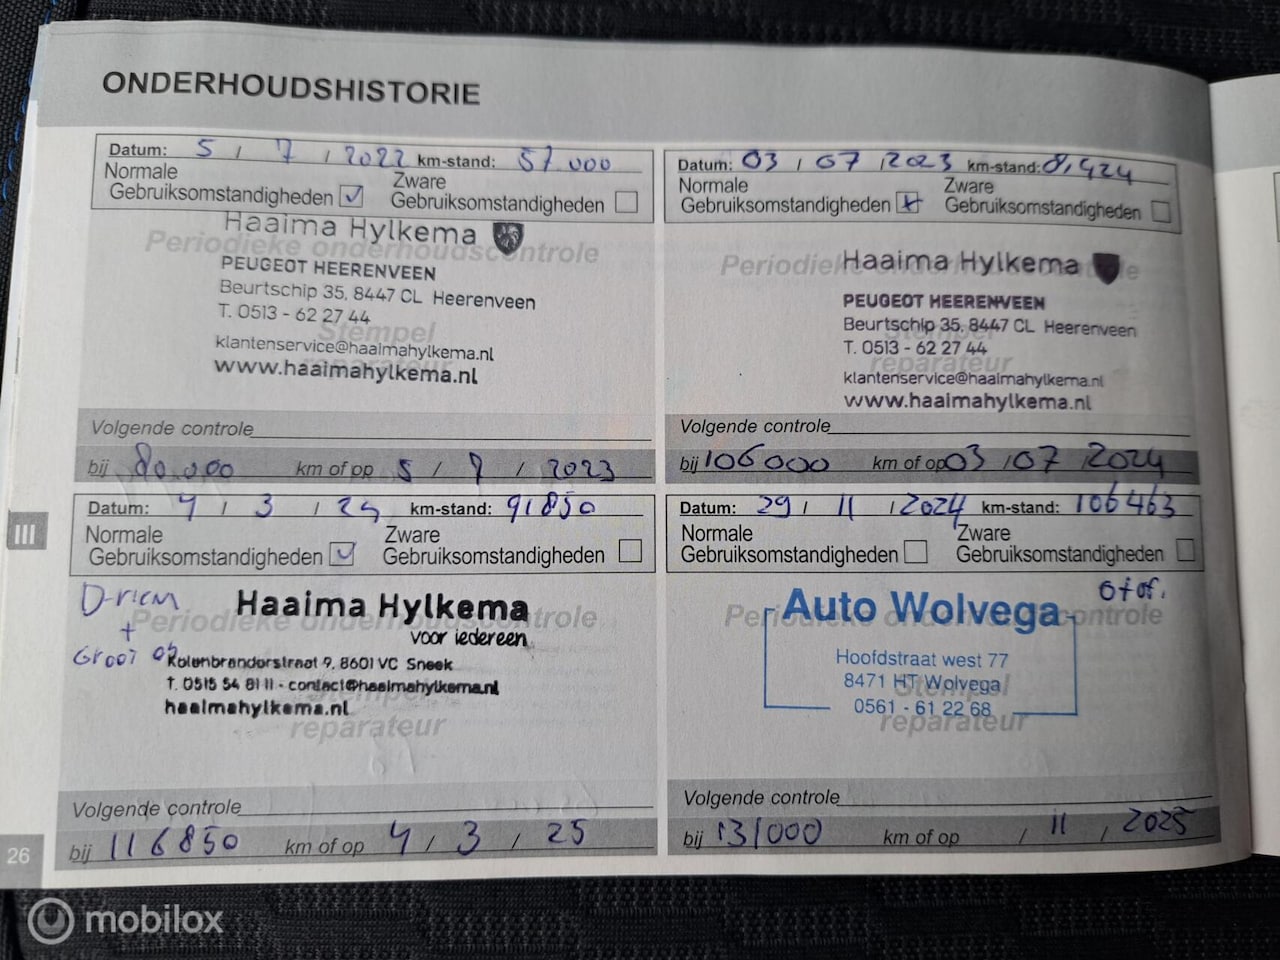 ONDERHOUDSHISTORIE
Datum: 5 / 7 / 2022 km-stand: 57.000
Normale
Gebruiksomstandigheden
Zware
Gebruiksomstandigheden
Periodieke onderhoudscontrole
Haaima Hylkema
PEUGEOT HEERENVEEN
Beurtschip 35, 8447 CL Heerenveen
T. 0513 - 62 27 44
Stempel
klantenservice@haaimahylkema.nl
reparateur
www.haaimahylkema.nl
Volgende controle
bij 80.000 km of op 5 / 7 / 2023
Datum: 03 / 07 / 2023 km-stand: 81,424
Normale
Gebruiksomstandigheden
Zware
Gebruiksomstandigheden
Periodieke
Haaima Hylkema
PEUGEOT HEERENVEEN
Beurtschip 35, 8447 CL Heerenveen
T. 0513 - 62 27 44
reparateur
klantenservice@haaimahylkema.nl
www.haaimahylkema.nl
Volgende controle
bij 106000 km of op 03 / 07 / 2024
III
Datum: 4 / 3 / 24 km-stand: 91850
Normale
Gebruiksomstandigheden
Zware
Gebruiksomstandigheden
D-riem
+
Groot
Periodieke onderhoudscontrole
Haaima Hylkema
voor iedereen
Kolenbranderstraat 9, 8601 VC Sneek
T. 0515 54 81 11 - contact@haaimahylkema.nl
haaimahylkema.nl
Stempel
reparateur
Volgende controle
bij 116850 km of op 4 / 3 / 25
Datum: 29 / 11 / 2024 km-stand: 106463
Normale
Gebruiksomstandigheden
Zware
Gebruiksomstandigheden
Auto Wolvega
Hoofdstraat west 77
8471 HT Wolvega
0561 - 61 22 68
Stempel
reparateur
Volgende controle
bij 131000 km of op / 11 / 2025
26
mobilox